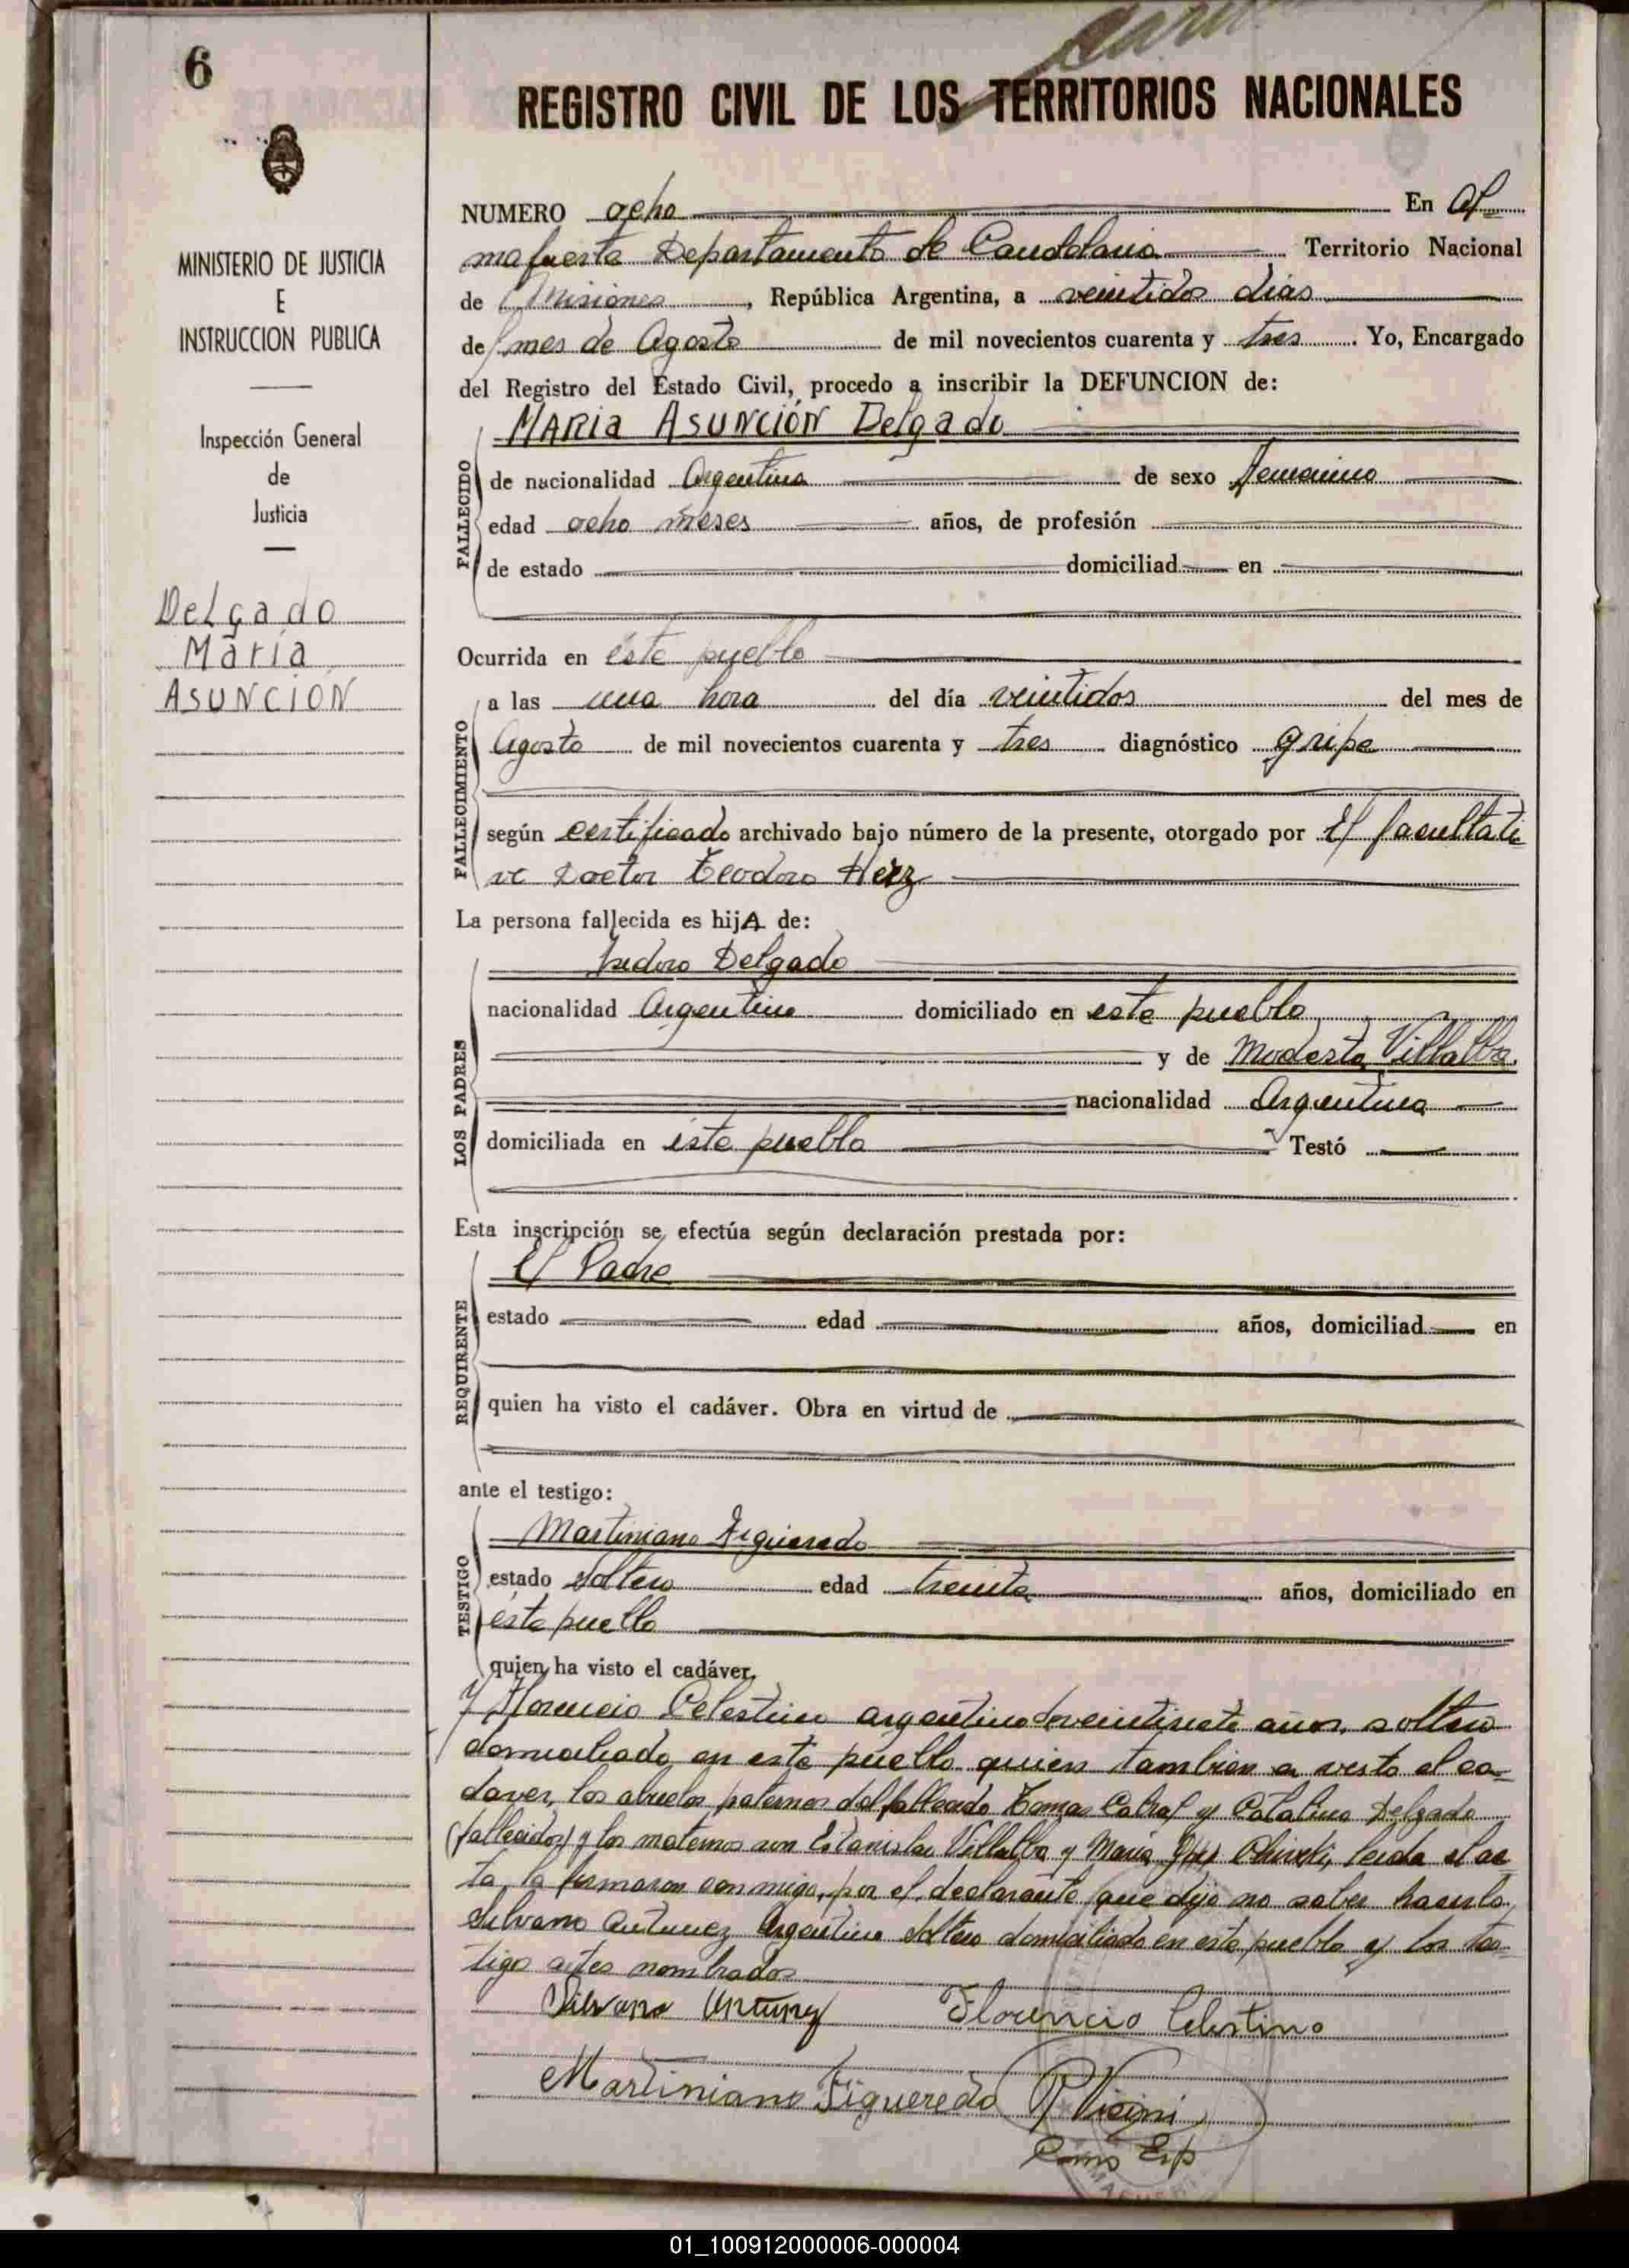 6
REGISTRO CIVIL DE LOS TERRITORIOS NACIONALES
MINISTERIO DE JUSTICIA
E
INSTRUCCION PUBLICA
Inspección General
de
Justicia
Delgado
María
ASUNCIÓN
NUMERO ocho En Al
mafuerte Departamento de Candelaria Territorio Nacional
de Misiones, República Argentina, a veintidos dias
del mes de Agosto de mil novecientos cuarenta y tres. Yo, Encargado
del Registro del Estado Civil, procedo a inscribir la DEFUNCION de:
MARIA ASUNCIÓN Delgado
FALLECIDO
de nacionalidad Argentina de sexo femenino
edad ocho meses años, de profesión
de estado domiciliad en
Ocurrida en éste pueblo
FALLECIMIENTO
a las una hora del día veintidos del mes de
Agosto de mil novecientos cuarenta y tres diagnóstico gripe
según certificado archivado bajo número de la presente, otorgado por El facultati
vo Doctor Teodoro Herz
La persona fallecida es hijA de:
LOS PADRES
Isidoro Delgado
nacionalidad Argentino domiciliado en este pueblo
y de Modesta Villalba
nacionalidad Argentina
domiciliada en éste pueblo Testó
Esta inscripción se efectúa según declaración prestada por:
REQUIRENTE
El Padre
estado edad años, domiciliad en
quien ha visto el cadáver. Obra en virtud de
ante el testigo:
TESTIGO
Martiniano Figueredo
estado soltero edad treinta años, domiciliado en
éste pueblo
quien ha visto el cadáver.
y Florencio Celestino argentino de veintisiete años, soltero
domiciliado en este pueblo quien tambien a visto el ca-
daver, los abuelos paternos del fallecido Tomas Cabral y Catalina Delgado
(fallecidos) y los maternos son Estanislao Villalba y María leida el ac
ta, la firmaron conmigo, por el declarante que dijo no saber hacerlo,
Silvano Antunez Argentino soltero domiciliado en este pueblo y los tes-
tigo antes nombrados
Silvano Antunez Florencio Celestino
Martiniano Figueredo R Vicini
01_100912000006-000004